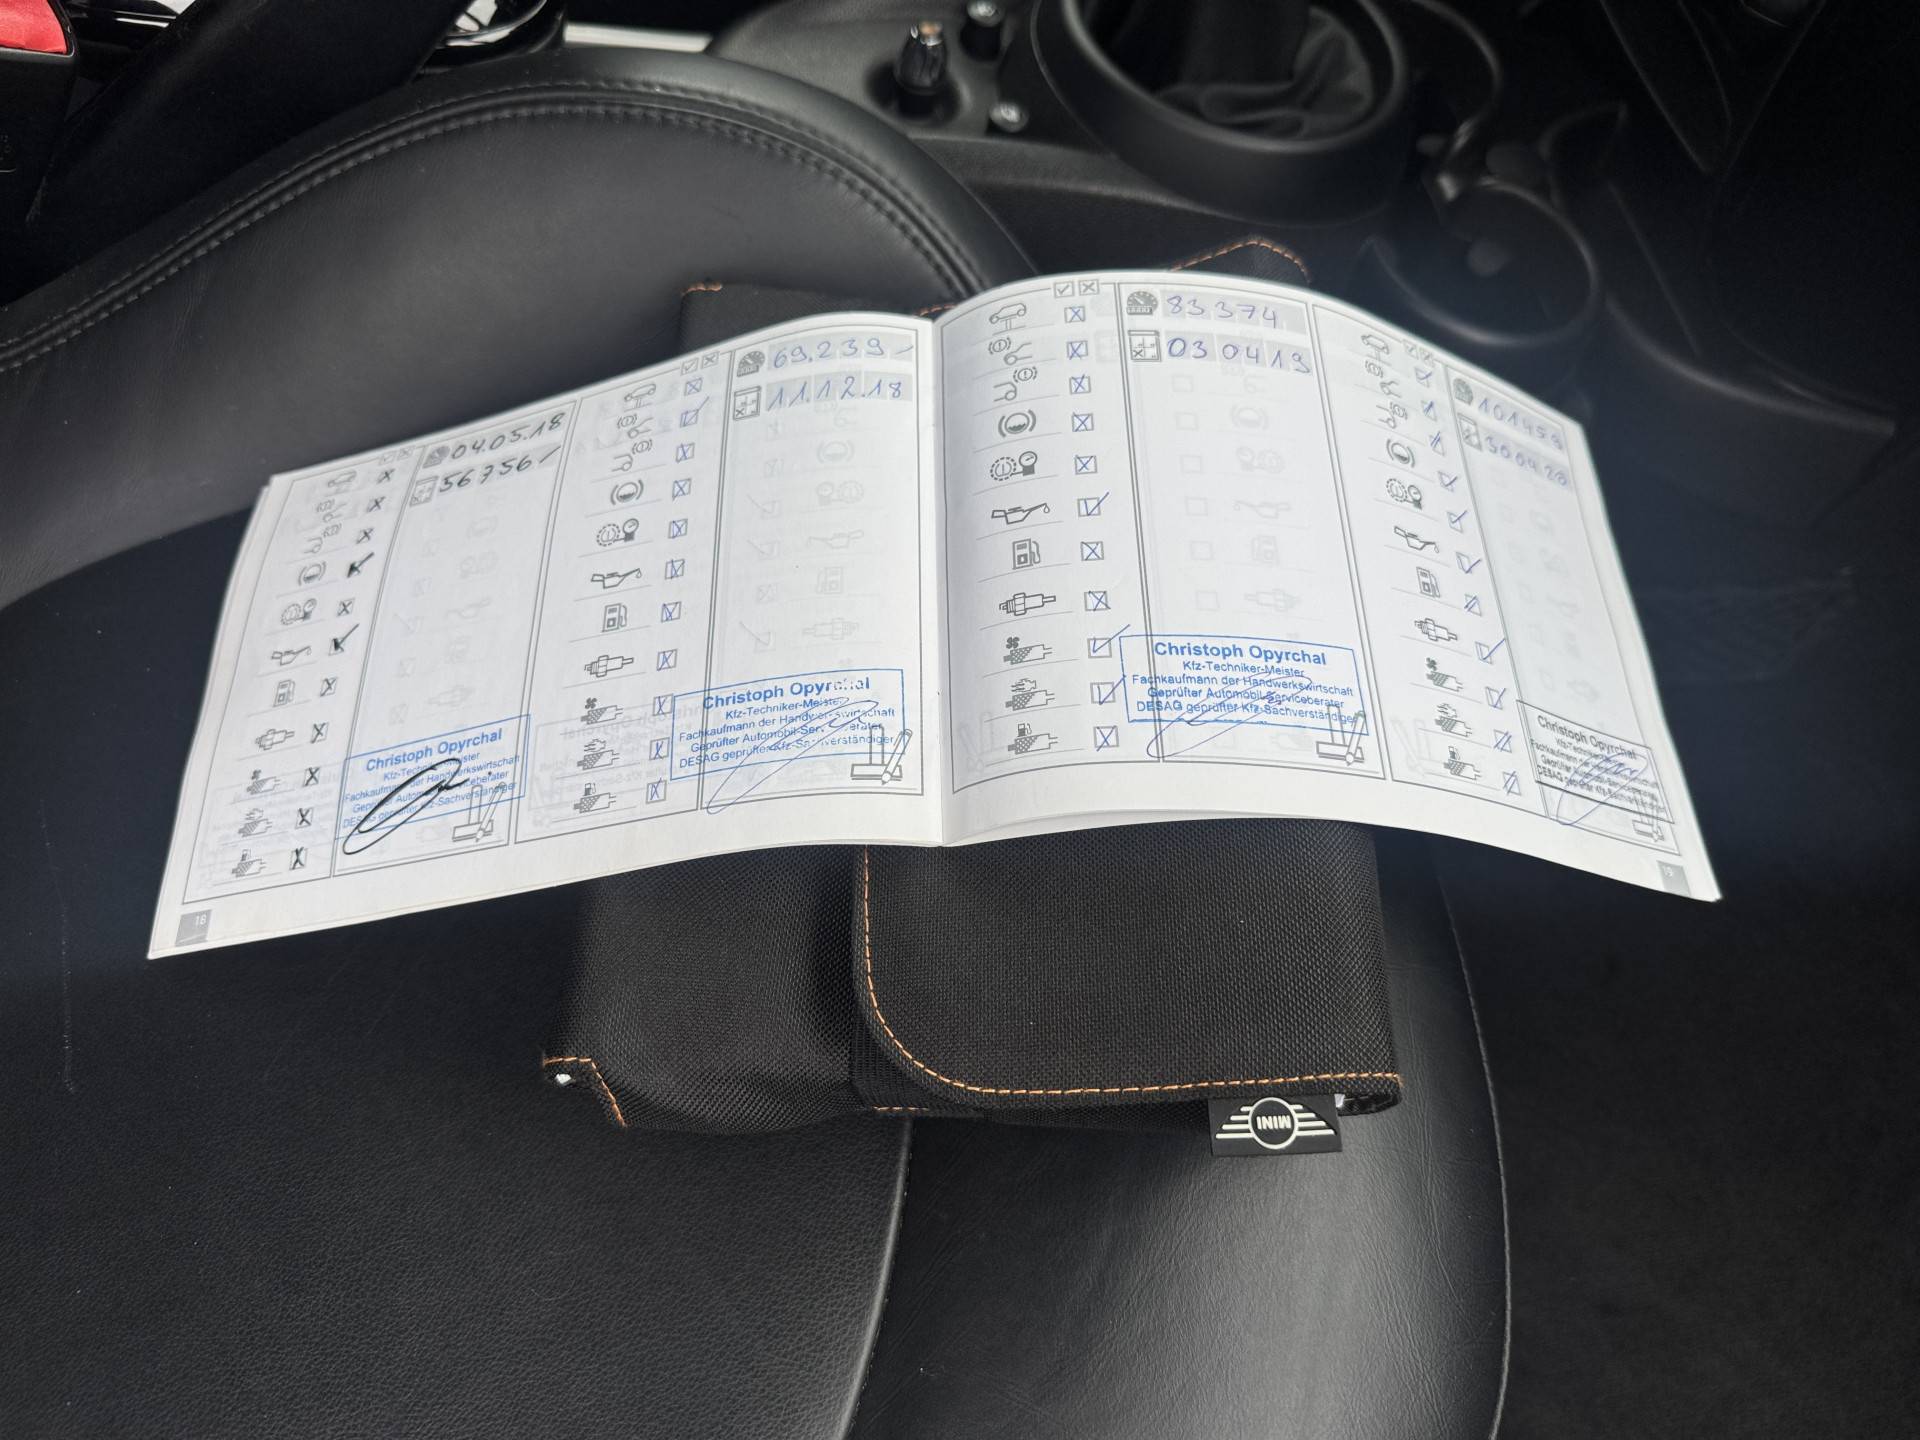 04.05.18
56756
Christoph Opyrchal
Kfz-Techniker-Meister
Fachkaufmann der Handwerkswirtschaft
Geprüfter Automobil-Serviceberater
DESAG geprüfter Kfz-Sachverständiger
18
69.239
11.12.18
Christoph Opyrchal
Kfz-Techniker-Meister
Fachkaufmann der Handwerkswirtschaft
Geprüfter Automobil-Serviceberater
DESAG geprüfter Kfz-Sachverständiger
83374
030419
Christoph Opyrchal
Kfz-Techniker-Meister
Fachkaufmann der Handwerkswirtschaft
Geprüfter Automobil-Serviceberater
DESAG geprüfter Kfz-Sachverständiger
101459
300420
Christoph Opyrchal
Kfz-Techniker-Meister
Fachkaufmann der Handwerkswirtschaft
Geprüfter Automobil-Serviceberater
DESAG geprüfter Kfz-Sachverständiger
19
MINI